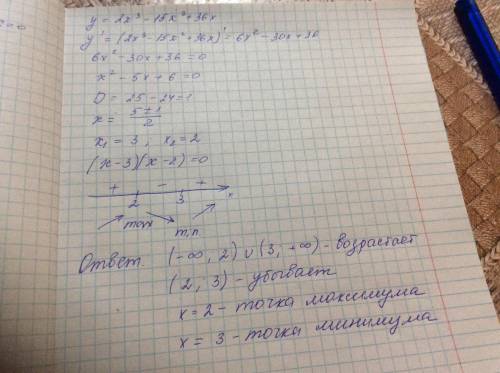 y = 2x³ - 15x² + 36x
y' = (2x³ - 15x² + 36x)' = 6x² - 30x + 36
6x² - 30x + 36 = 0
x² - 5x + 6 = 0
D = 25 - 24 = 1
x = (5 ± 1)/2
x₁ = 3, x₂ = 2
(x-3)(x-2) = 0
+ - +
2 3 x
max min
Ответ. (-∞, 2) ∪ (3, +∞) - возрастает
(2, 3) - убывает
x = 2 - точка максимума
x = 3 - точка минимума